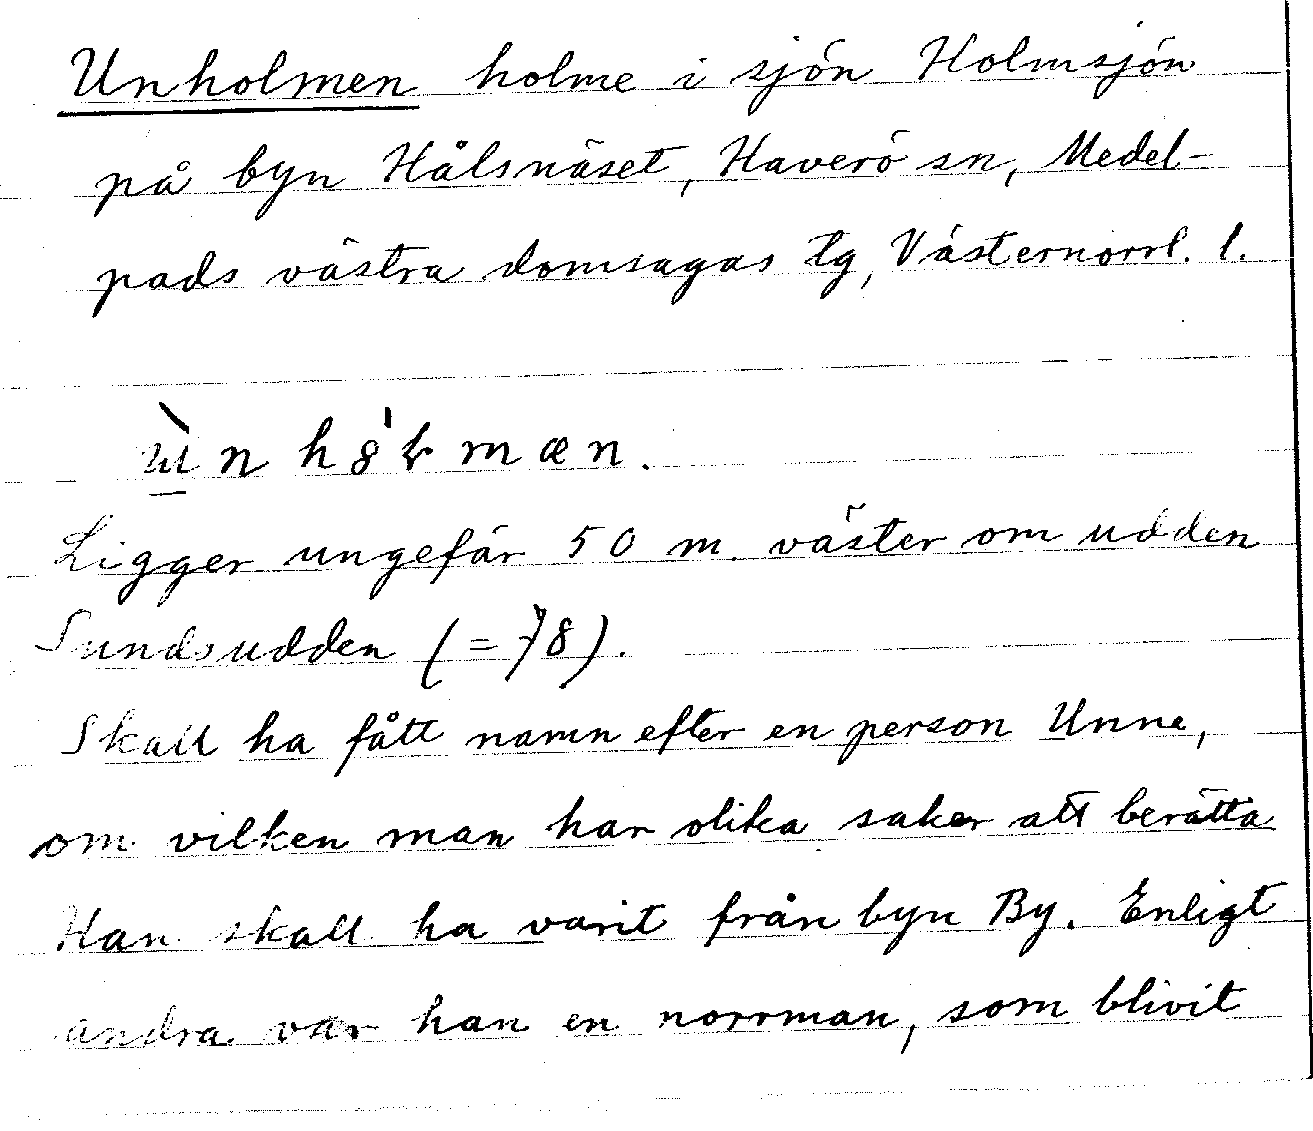 Unholmen holme i sjön Holmsjön
på byn Hålsnäset, Haverö sn, Medel-
pads västra domsagas tg, Västernorrl. l.
Ligger ungefär 50 m. väster om udden
Sundsudden (= 78).
Skall ha fått namn efter en person Unne,
om vilken man har olika saker att berätta
Han skall ha varit från byn By. Enligt
andra var han en norrman, som blivit